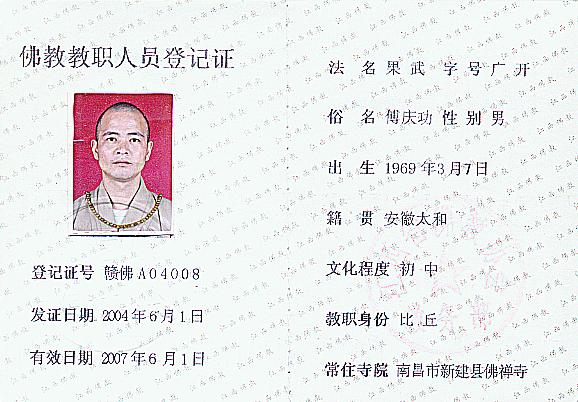 佛教教职人员登记证
登记证号 赣佛A04008
发证日期 2004年6月1日
有效日期 2007年6月1日
法名 果武 字号 广开
俗名 傅庆功 性别 男
出生 1969年3月7日
籍贯 安徽太和
文化程度 初中
教职身份 比丘
常住寺院 南昌市新建县佛禅寺